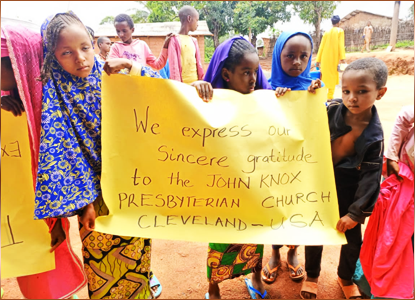 We express our
Sincere gratitude
to the JOHN KNOX
PRESBYTERIAN CHURCH
CLEVELAND - USA